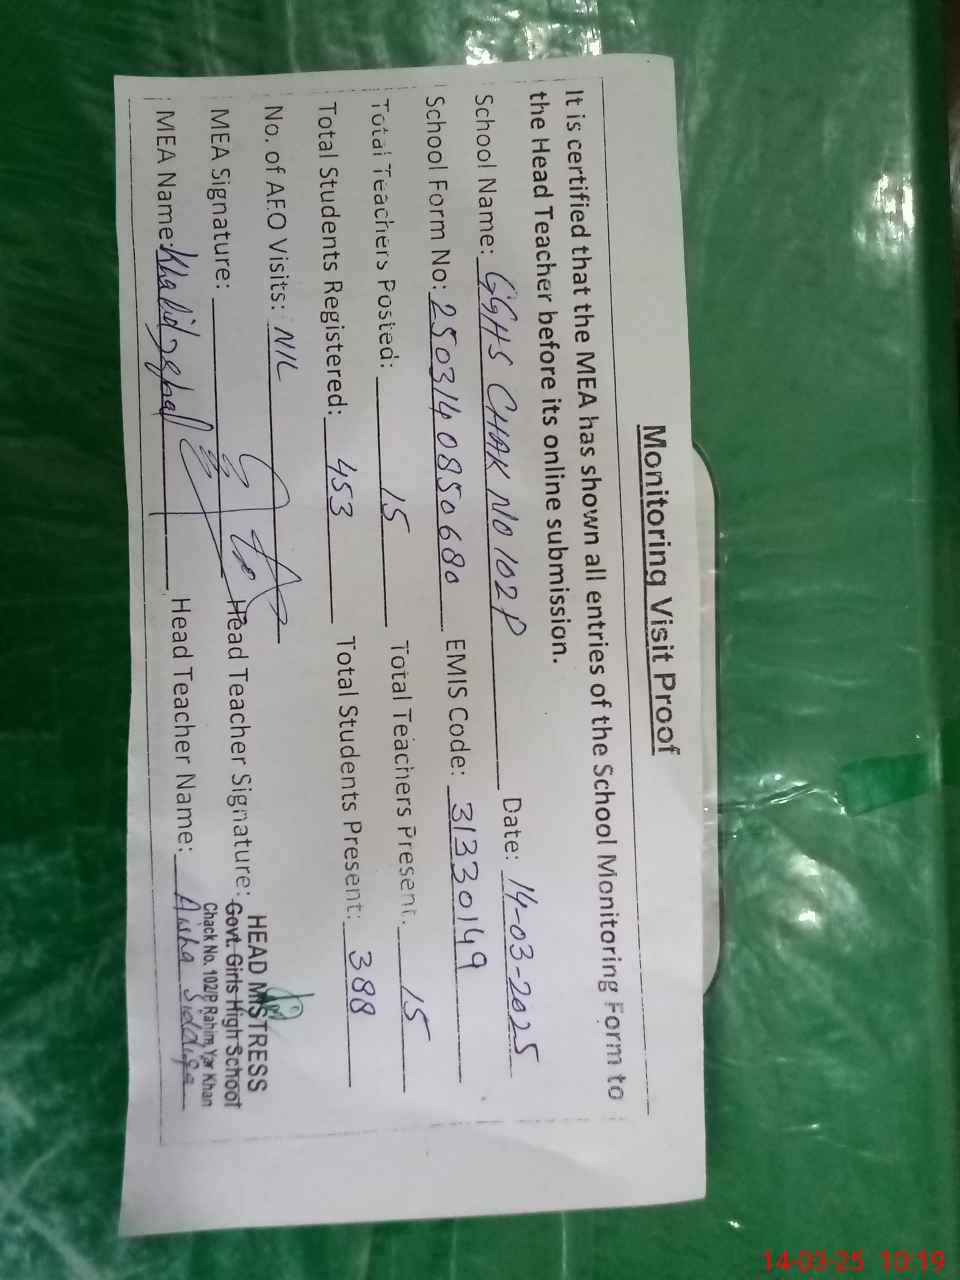 Monitoring Visit Proof
It is certified that the MEA has shown all entries of the School Monitoring Form to
the Head Teacher before its online submission.
School Name: GGHS CHAK NO 102P Date: 14-03-2025
School Form No: 250314 0850680 EMIS Code: 31330149
Total Teachers Posted: 15 Total Teachers Present: 15
Total Students Registered: 453 Total Students Present: 388
No. of AEO Visits: NIL
MEA Signature: Head Teacher Signature:
HEAD MISTRESS
Govt. Girls High School
Chack No. 102/P, Rahim Yar Khan
MEA Name: Khalid Head Teacher Name: Aisha Siddiqa
14-03-25 10:19